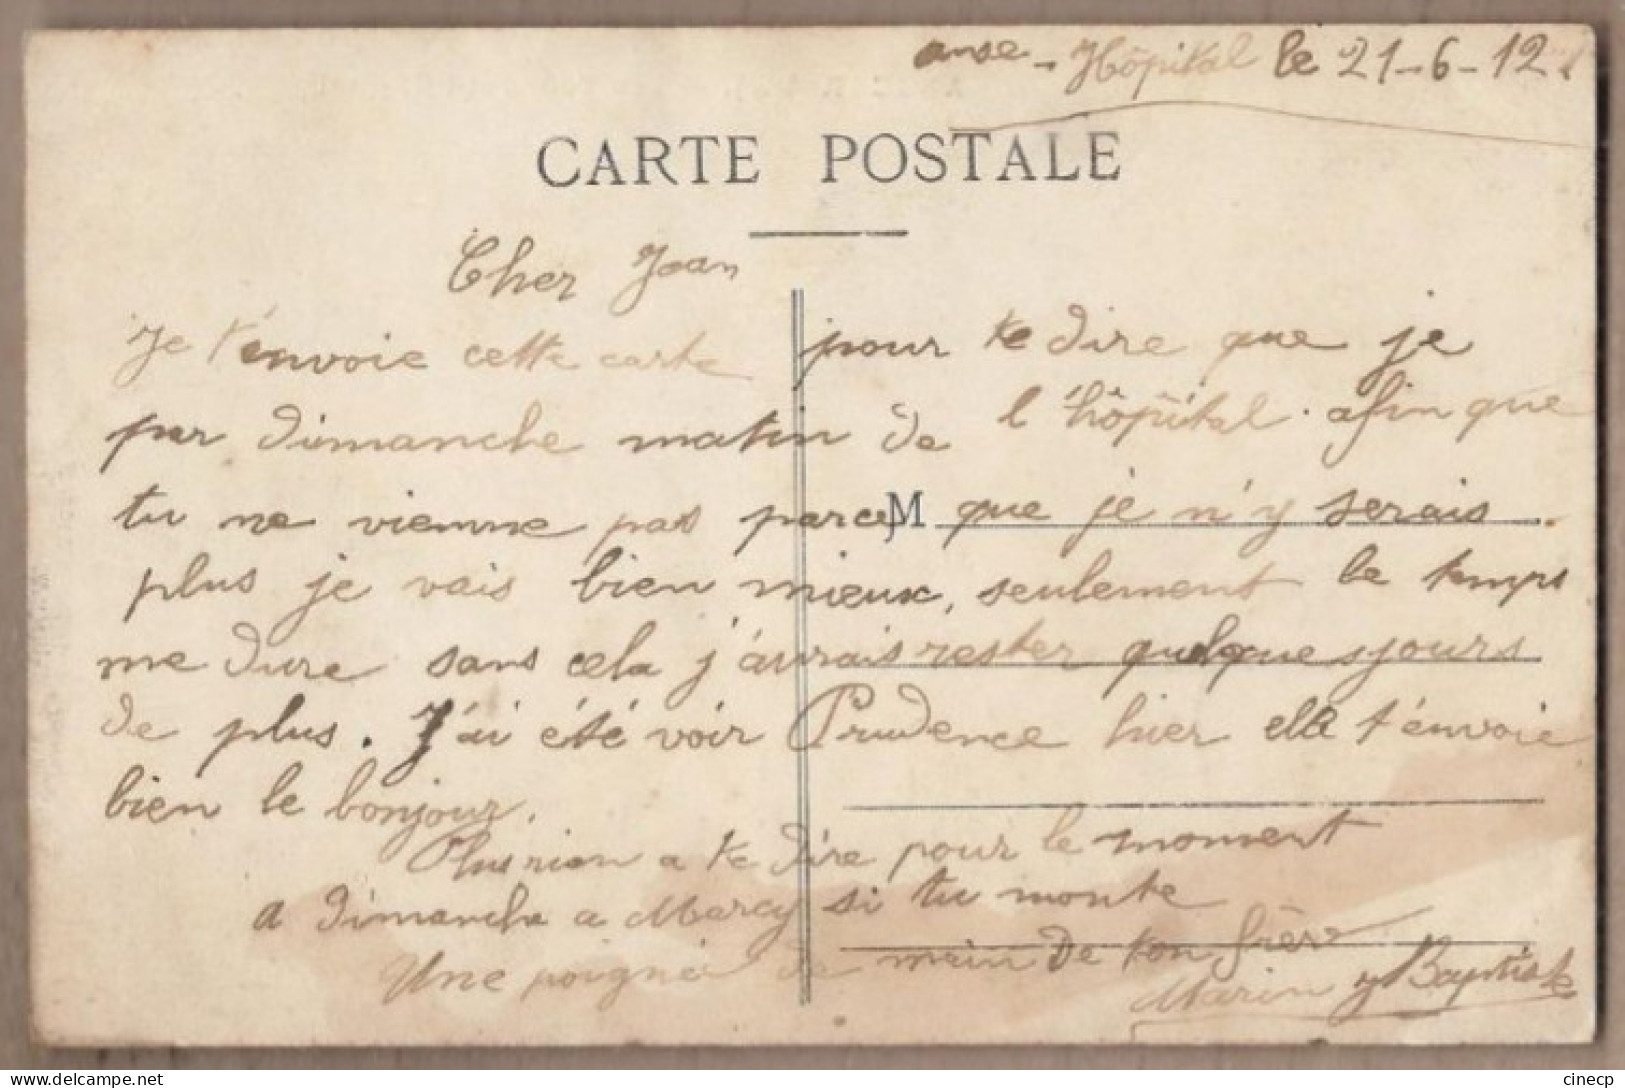 anse - Hôpital le 21-6-12.
CARTE POSTALE
Cher Jean
Je t'envoie cette carte pour te dire que je
par dimanche matin de l'hôpital. afin que
tu ne vienne pas parce que je n'y serais
M
plus je vais bien mieux, seulement le temps
me dure sans cela j'aurais rester quelques jours
de plus. J'ai été voir Prudence hier elle t'envoie
bien le bonjour.
Plus rien a te dire pour le moment
a dimanche a Marcy si tu monte
Une poignée de main de ton frère
Marin J Baptiste
cinecp